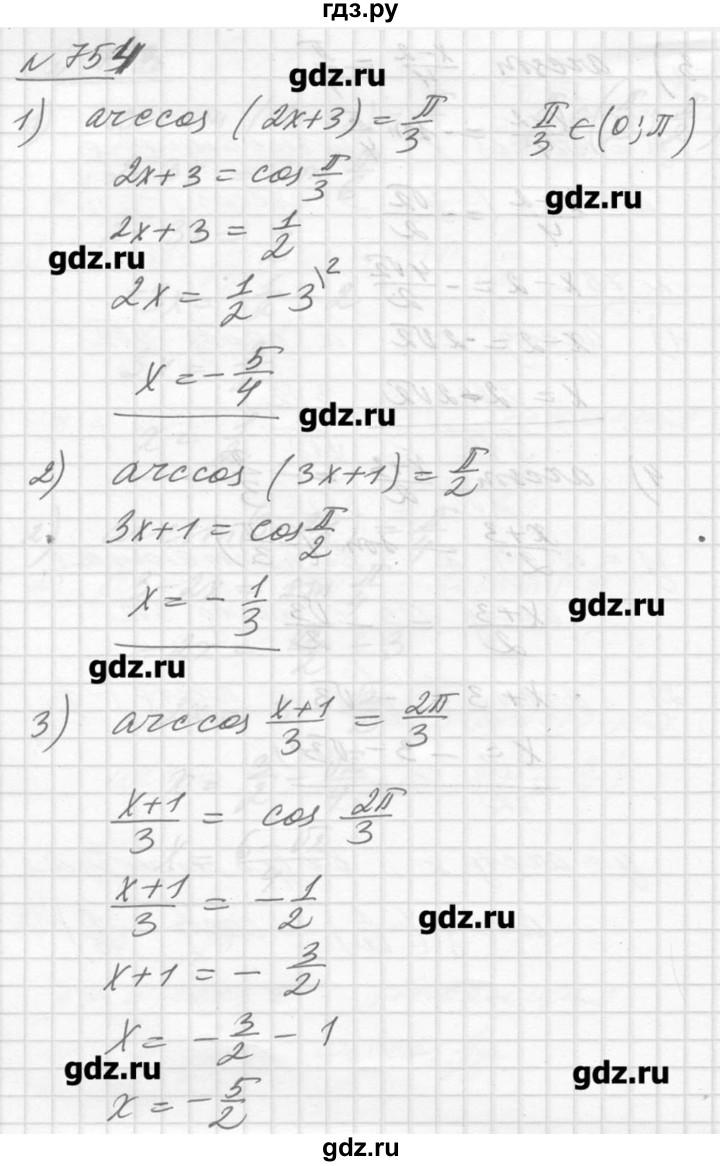 гдз.ру
№ 754
gdz.ru
1) arccos (2x+3) = π/3   π/3 ∈ (0; π)
2x+3 = cos π/3
gdz.ru
2x+3 = 1/2
gdz.ru
2x = 1/2 - 3\2
x = - 5/4
gdz.ru
2) arccos (3x+1) = π/2
3x+1 = cos π/2
x = - 1/3
gdz.ru
gdz.ru
3) arccos (x+1)/3 = 2π/3
(x+1)/3 = cos 2π/3
(x+1)/3 = - 1/2
gdz.ru
x+1 = - 3/2
x = - 3/2 - 1
gdz.ru
gdz.ru
x = - 5/2
gdz.ru